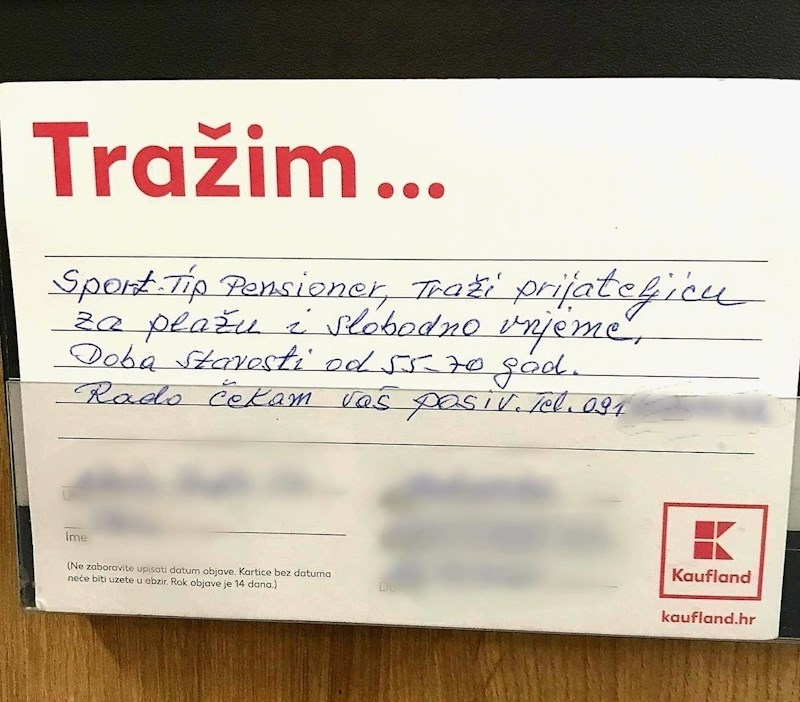 Tražim...
Sport.Tip Pensioner, Traži prijateljicu
za plažu i slobodno vrijeme,
Doba starosti od 55-70 god.
Rado čekam vaš posiv. Tel. 091
Ime
(Ne zaboravite upisati datum objave. Kartice bez datuma
neće biti uzete u obzir. Rok objave je 14 dana.)
Kaufland
kaufland.hr